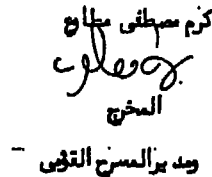 كرم مطاوع
المخرج
ومدير المسرح القومى